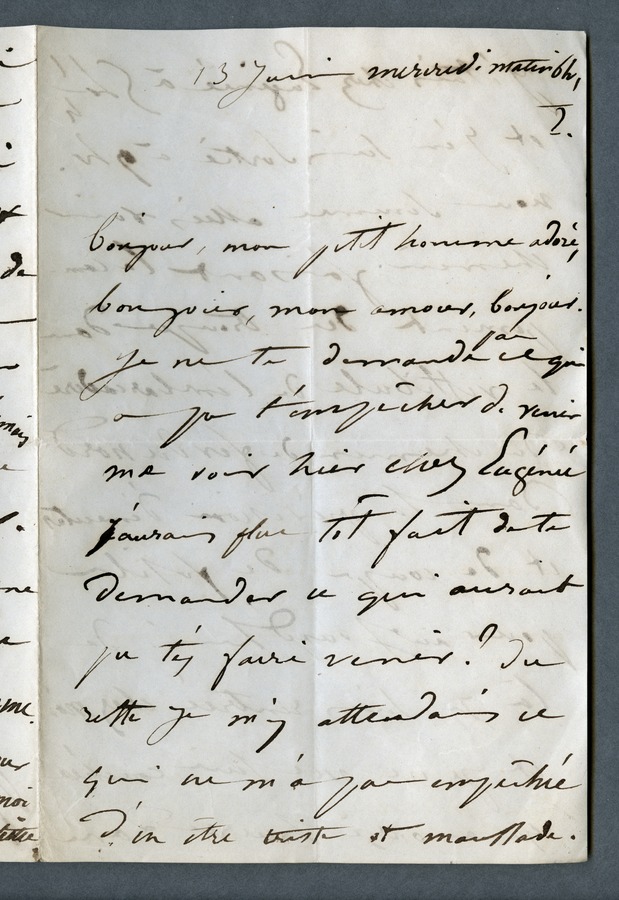 13 Juin mercredi matin 6h,
½.
bonjour, mon ptit homme adoré,
bonjour, mon amour, bonjour.
Je ne te demande pas ce qui
a pu t'empêcher de venir
me voir hier chez Eugénie
j'aurais plus tôt fait de te
demander ce qui aurait
pu t'y faire venir ? Du
reste je m'y attendais ce
qui ne m'a pas empêchée
d'en être triste et maussade.